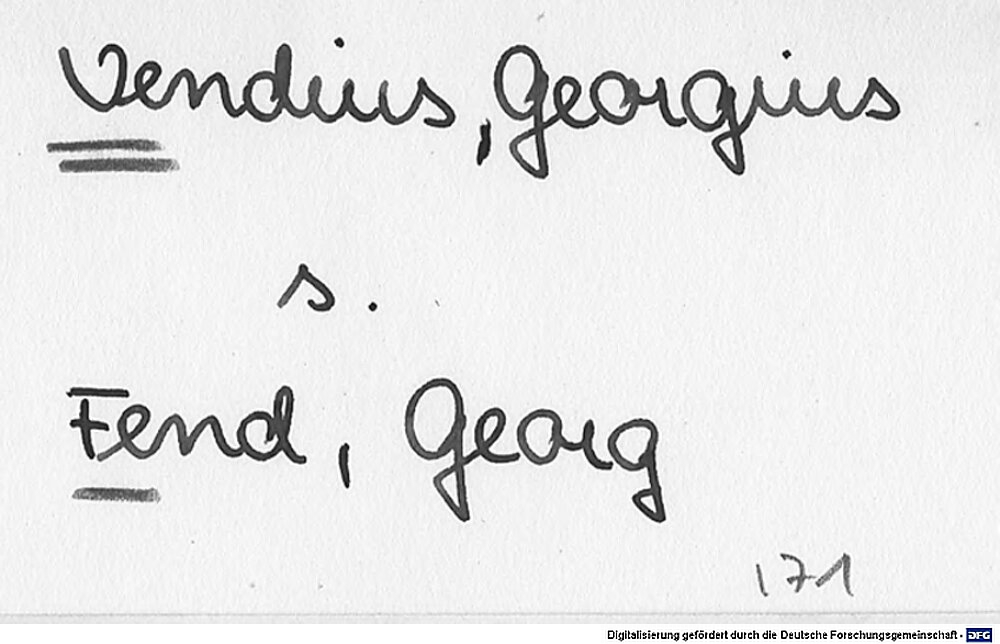 Vendius, Georgius
s.
Fend, Georg
171
Digitalisierung gefördert durch die Deutsche Forschungsgemeinschaft - DFG